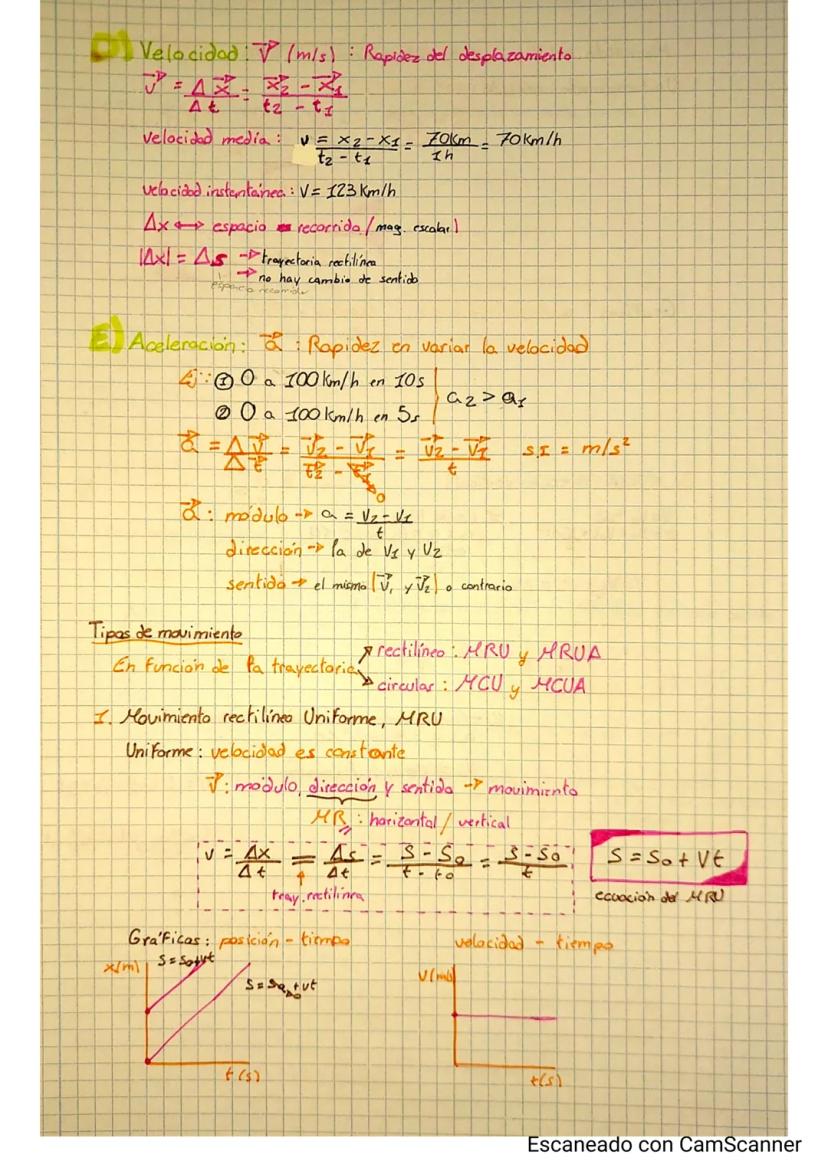 D) Velocidad: V⃗ (m/s) : Rapidez del desplazamiento
V⃗ = Δx⃗/Δt = (x⃗2 - x⃗1)/(t2 - t1)
velocidad media: v = (x2 - x1)/(t2 - t1) = 70Km/1h = 70Km/h
velocidad instantánea: V = 123 Km/h
Δx ↔ espacio recorrido / mag. escalar |
|Δx| = Δs → trayectoria rectilínea
→ no hay cambio de sentido
espacio recorrido
E) Aceleración: a⃗ : Rapidez en variar la velocidad
Ej: ① 0 a 100 Km/h en 10s
② 0 a 100 Km/h en 5s
a2 > a1
a⃗ = ΔV⃗/Δt⃗ = (V⃗2 - V⃗1)/(t⃗2 - t⃗1) = (V⃗2 - V⃗1)/t S.I = m/s²
0
a⃗: módulo → a = (V2 - V1)/t
dirección → la de V1 y V2
sentido → el mismo (V⃗1 y V⃗2) o contrario
Tipos de movimiento
En función de la trayectoria
rectilíneo : MRU y MRUA
circular : MCU y MCUA
1. Movimiento rectilíneo Uniforme, MRU
Uniforme: velocidad es constante
V⃗: módulo, dirección y sentido → movimiento
MR : horizontal / vertical
v = Δx/Δt = Δs/Δt = (S - S0)/(t - t0) = (S - S0)/t
S = S0 + Vt
tray. rectilínea
ecuación del MRU
Gráficas: posición - tiempo
velocidad - tiempo
x(m) S = S0 + vt
S = S0 + vt
0
V(m/s)
t (s)
t(s)
Escaneado con CamScanner